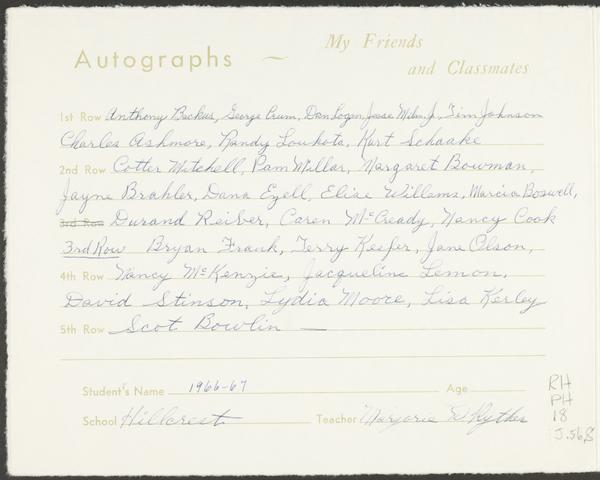 Autographs ~ My Friends
and Classmates
1st Row Anthony Backus, George Crum, Dan Logan, Jesse Milan, Jr., Tim Johnson
Charles Ashmore, Randy Loukota, Kurt Schaake
2nd Row Cotter Mitchell, Pam Millar, Margaret Bowman,
Jayne Brahler, Dana Ezell, Elise Willems, Marcia Boswell,
3rd Row Durand Reiber, Caren McCready, Nancy Cook
3rd Row Bryan Frank, Terry Keefer, Jane Olson,
4th Row Nancy McKenzie, Jacqueline Lemon,
David Stinson, Lydia Moore, Lisa Kerley
5th Row Scot Bowlin —
Student's Name 1966-67 Age
School Hillcrest Teacher Marjorie
RH
PH
18
J.56.8